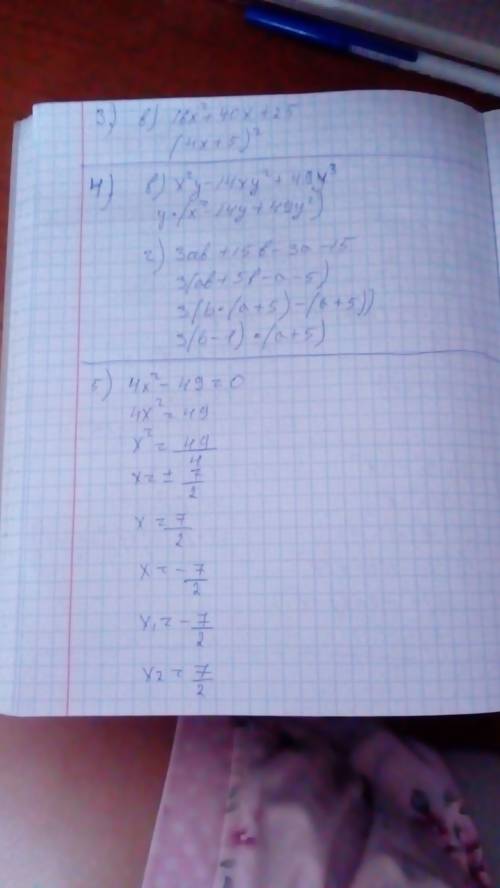 3) в) 16x²+40x+25
(4x+5)²
4) в) x²y-14xy²+49y³
y·(x²-14y+49y²)
г) 3ab+15b-3a-15
3(ab+5b-a-5)
3(b·(a+5)-(a+5))
3(b-1)·(a+5)
5) 4x²-49=0
4x²=49
x²=49/4
x=±7/2
x=7/2
x=-7/2
x₁=-7/2
x₂=7/2